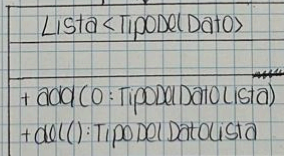 Lista<TipoDelDato>
+add(o:TipoDelDatoLista)
+del():TipoDelDatoLista